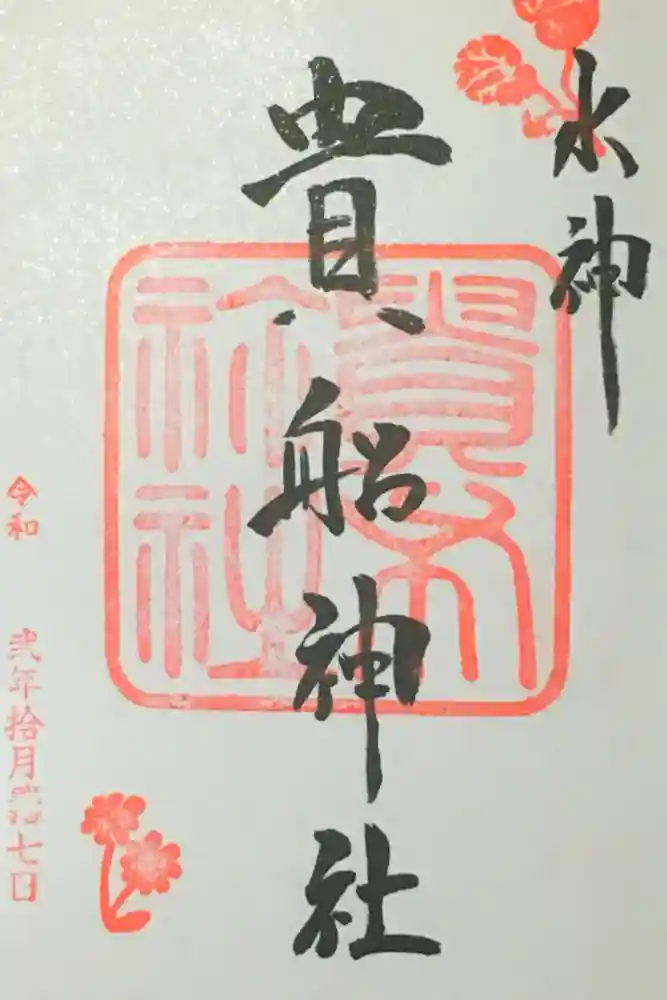 水神
貴船神社
貴布祢社
令和 弐年拾月 七日